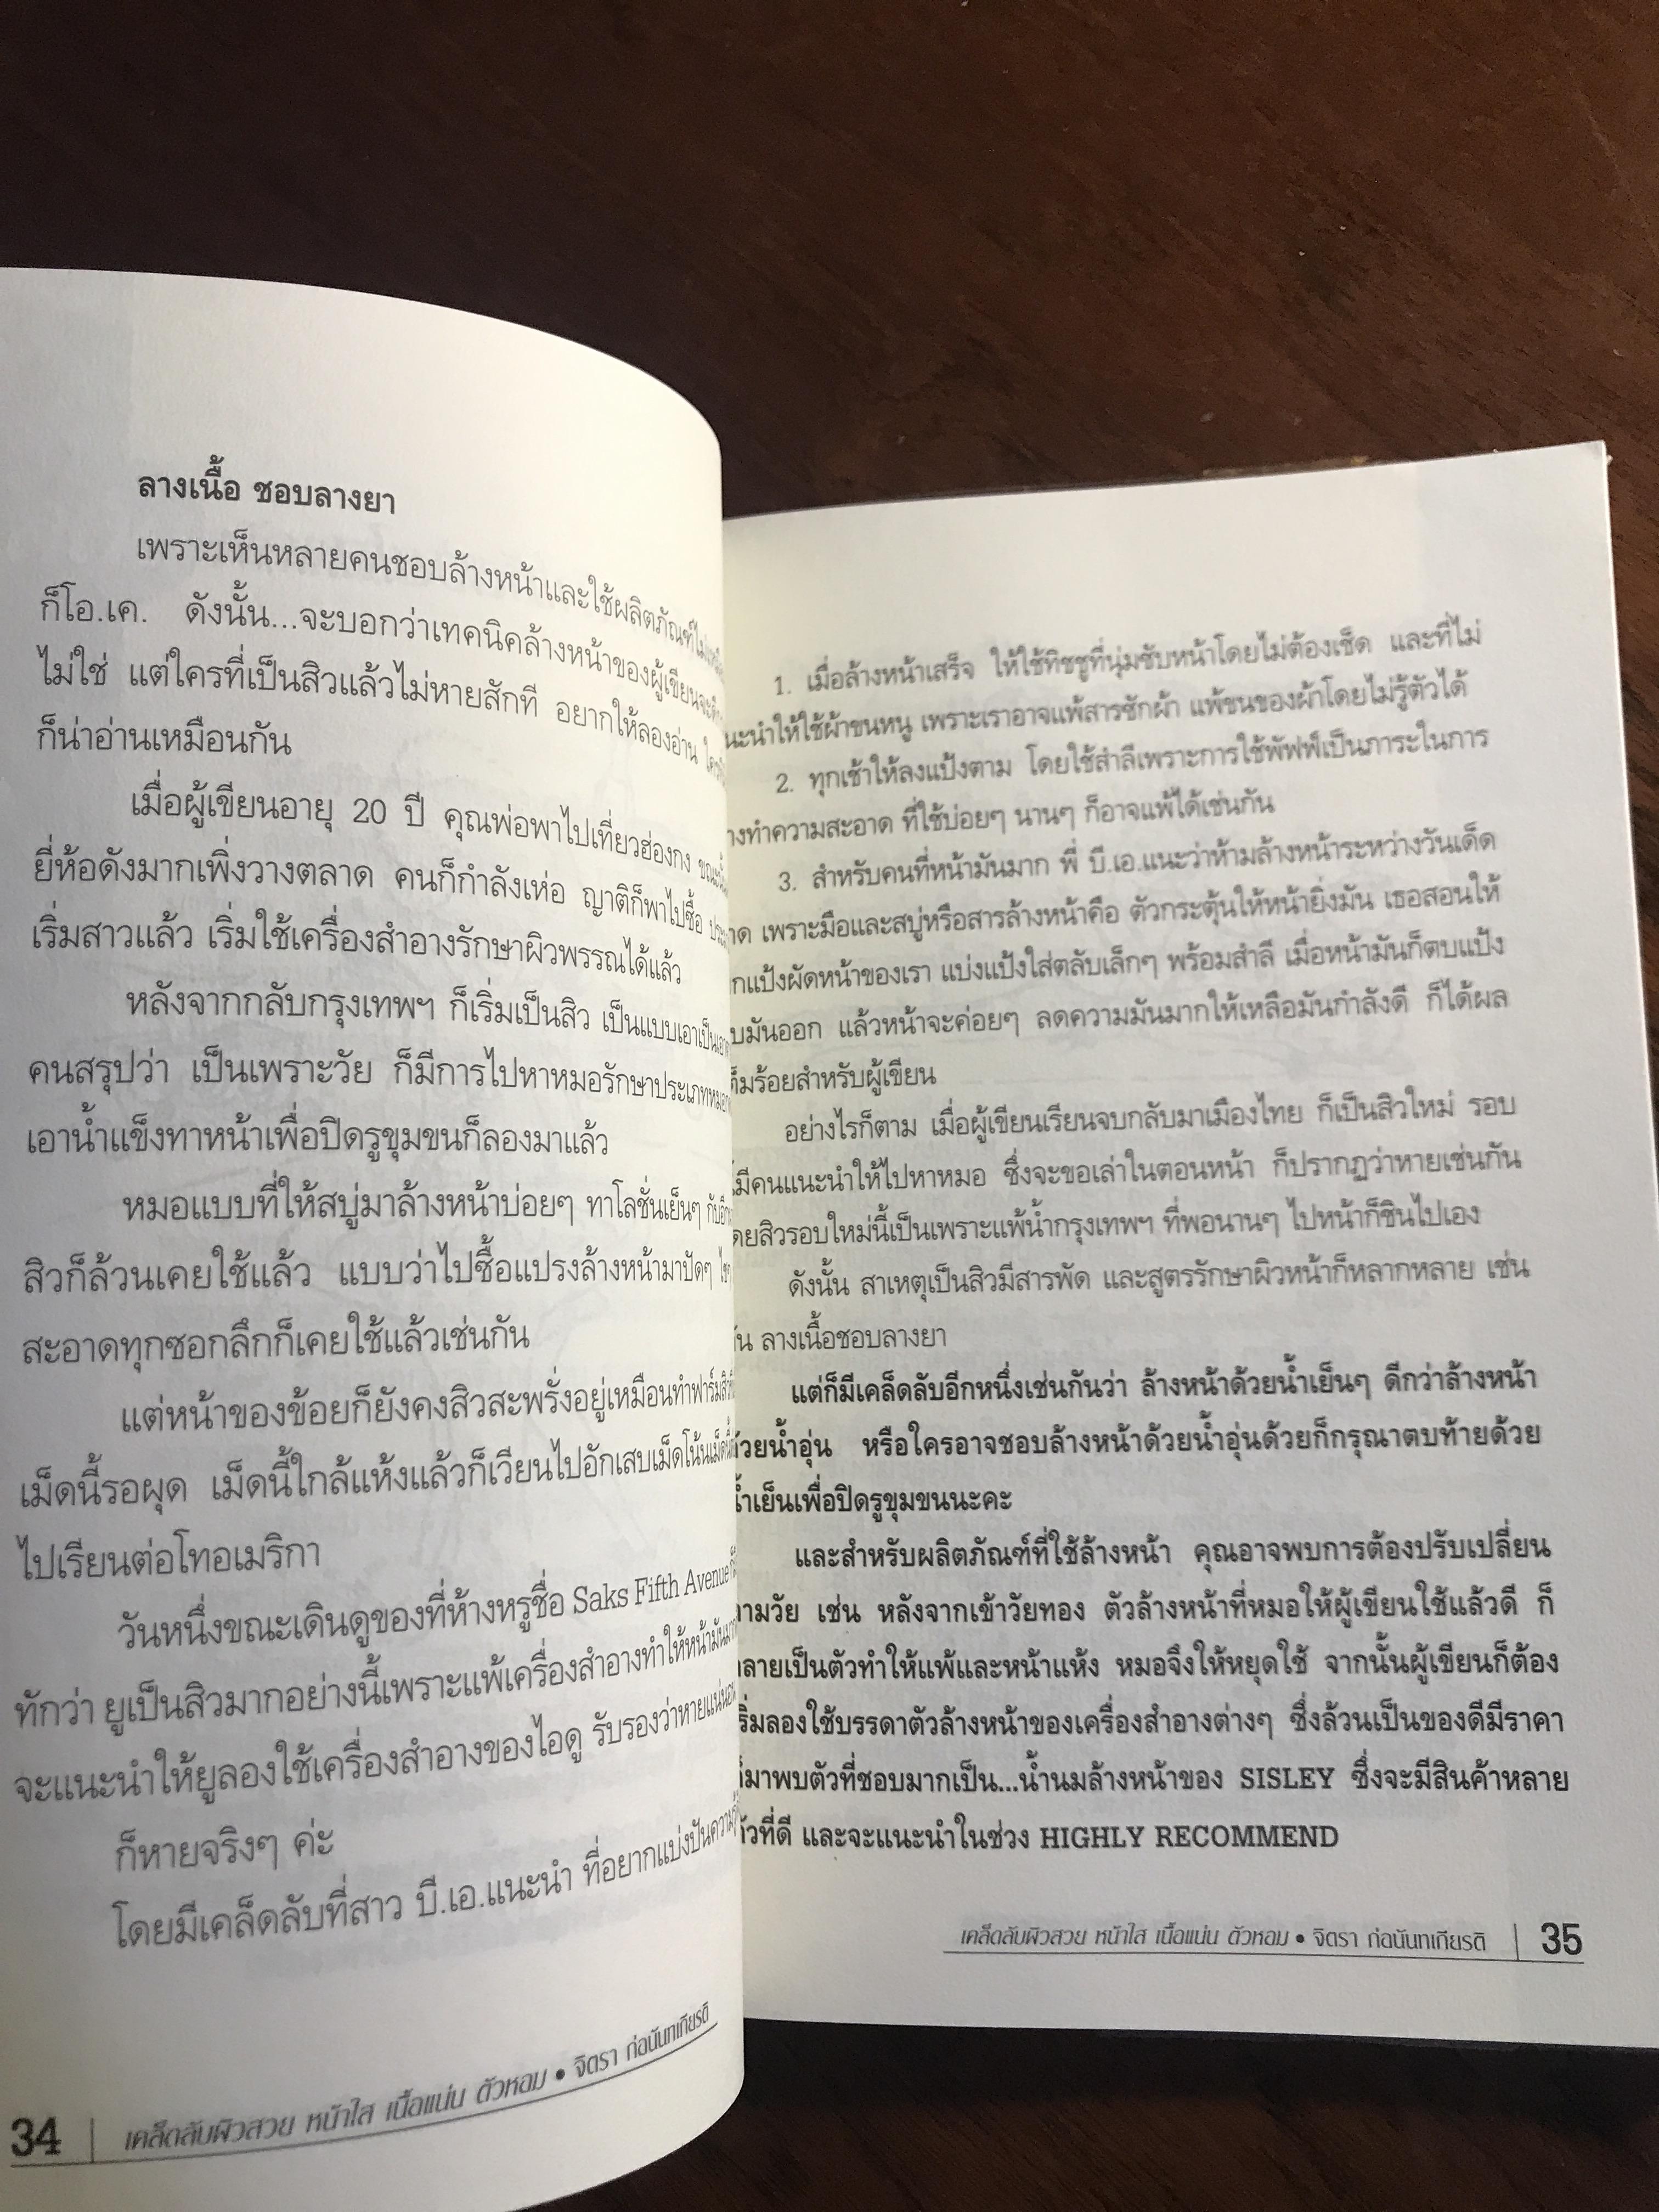 ลางเนื้อ ชอบลางยา
เพราะเห็นหลายคนชอบล้างหน้าและใช้ผลิตภัณฑ์
ก็โอ.เค. ดังนั้น...จะบอกว่าเทคนิคล้างหน้าของผู้เขียน
ไม่ใช่ แต่ใครที่เป็นสิวแล้วไม่หายสักที อยากให้ลองอ่าน
ก็น่าอ่านเหมือนกัน
เมื่อผู้เขียนอายุ 20 ปี คุณพ่อพาไปเที่ยวฮ่องกง
ยี่ห้อดังมากเพิ่งวางตลาด คนก็กำลังเห่อ ญาติก็พาไปซื้อ
เริ่มสาวแล้ว เริ่มใช้เครื่องสำอางรักษาผิวพรรณได้แล้ว
หลังจากกลับกรุงเทพฯ ก็เริ่มเป็นสิว เป็นแบบเอาเป็นเอา
คนสรุปว่า เป็นเพราะวัย ก็มีการไปหาหมอรักษาประเภท
เอาน้ำแข็งทาหน้าเพื่อปิดรูขุมขนก็ลองมาแล้ว
หมอแบบที่ให้สบู่มาล้างหน้าบ่อยๆ ทาโลชั่นเย็นๆ
สิวก็ล้วนเคยใช้แล้ว แบบว่าไปซื้อแปรงล้างหน้ามาปัดๆ
สะอาดทุกซอกลึกก็เคยใช้แล้วเช่นกัน
แต่หน้าของข้อยก็ยังคงสิวสะพรั่งอยู่เหมือนทำฟาร์มสิว
เม็ดนี้รอผุด เม็ดนี้ใกล้แห้งแล้วก็เวียนไปอักเสบเม็ดโน้น
ไปเรียนต่อโทอเมริกา
วันหนึ่งขณะเดินดูของที่ห้างหรูชื่อ Saks Fifth Avenue
ทักว่า ยูเป็นสิวมากอย่างนี้เพราะแพ้เครื่องสำอางทำให้หน้ามัน
จะแนะนำให้ยูลองใช้เครื่องสำอางของไอดู รับรองว่าหายแน่นอน
ก็หายจริงๆ ค่ะ
โดยมีเคล็ดลับที่สาว บี.เอ.แนะนำ ที่อยากแบ่งปัน
34 เคล็ดลับผิวสวย หน้าใส เนื้อแน่น ตัวหอม • จิตรา ก่อนันทเกียรติ
1. เมื่อล้างหน้าเสร็จ ให้ใช้ทิชชูที่นุ่มซับหน้าโดยไม่ต้องเช็ด และที่ไม่
นะนำให้ใช้ผ้าขนหนู เพราะเราอาจแพ้สารซักผ้า แพ้ขนของผ้าโดยไม่รู้ตัวได้
2. ทุกเช้าให้ลงแป้งตาม โดยใช้สำลีเพราะการใช้พัฟฟ์เป็นภาระในการ
างทำความสะอาด ที่ใช้บ่อยๆ นานๆ ก็อาจแพ้ได้เช่นกัน
3. สำหรับคนที่หน้ามันมาก พี่ บี.เอ.แนะว่าห้ามล้างหน้าระหว่างวันเด็ด
าด เพราะมือและสบู่หรือสารล้างหน้าคือ ตัวกระตุ้นให้หน้ายิ่งมัน เธอสอนให้
กแป้งผัดหน้าของเรา แบ่งแป้งใส่ตลับเล็กๆ พร้อมสำลี เมื่อหน้ามันก็ตบแป้ง
บมันออก แล้วหน้าจะค่อยๆ ลดความมันมากให้เหลือมันกำลังดี ก็ได้ผล
ต็มร้อยสำหรับผู้เขียน
อย่างไรก็ตาม เมื่อผู้เขียนเรียนจบกลับมาเมืองไทย ก็เป็นสิวใหม่ รอบ
มีคนแนะนำให้ไปหาหมอ ซึ่งจะขอเล่าในตอนหน้า ก็ปรากฏว่าหายเช่นกัน
ดยสิวรอบใหม่นี้เป็นเพราะแพ้น้ำกรุงเทพฯ ที่พอนานๆ ไปหน้าก็ชินไปเอง
ดังนั้น สาเหตุเป็นสิวมีสารพัด และสูตรรักษาผิวหน้าก็หลากหลาย เช่น
ัน ลางเนื้อชอบลางยา
แต่ก็มีเคล็ดลับอีกหนึ่งเช่นกันว่า ล้างหน้าด้วยน้ำเย็นๆ ดีกว่าล้างหน้า
ด้วยน้ำอุ่น หรือใครอาจชอบล้างหน้าด้วยน้ำอุ่นด้วยก็กรุณาตบท้ายด้วย
น้ำเย็นเพื่อปิดรูขุมขนนะคะ
และสำหรับผลิตภัณฑ์ที่ใช้ล้างหน้า คุณอาจพบการต้องปรับเปลี่ยน
ามวัย เช่น หลังจากเข้าวัยทอง ตัวล้างหน้าที่หมอให้ผู้เขียนใช้แล้วดี ก็
ลายเป็นตัวทำให้แพ้และหน้าแห้ง หมอจึงให้หยุดใช้ จากนั้นผู้เขียนก็ต้อง
ริ่มลองใช้บรรดาตัวล้างหน้าของเครื่องสำอางต่างๆ ซึ่งล้วนเป็นของดีมีราคา
ก็มาพบตัวที่ชอบมากเป็น...น้ำนมล้างหน้าของ SISLEY ซึ่งจะมีสินค้าหลาย
ตัวที่ดี และจะแนะนำในช่วง HIGHLY RECOMMEND
เคล็ดลับผิวสวย หน้าใส เนื้อแน่น ตัวหอม • จิตรา ก่อนันทเกียรติ 35